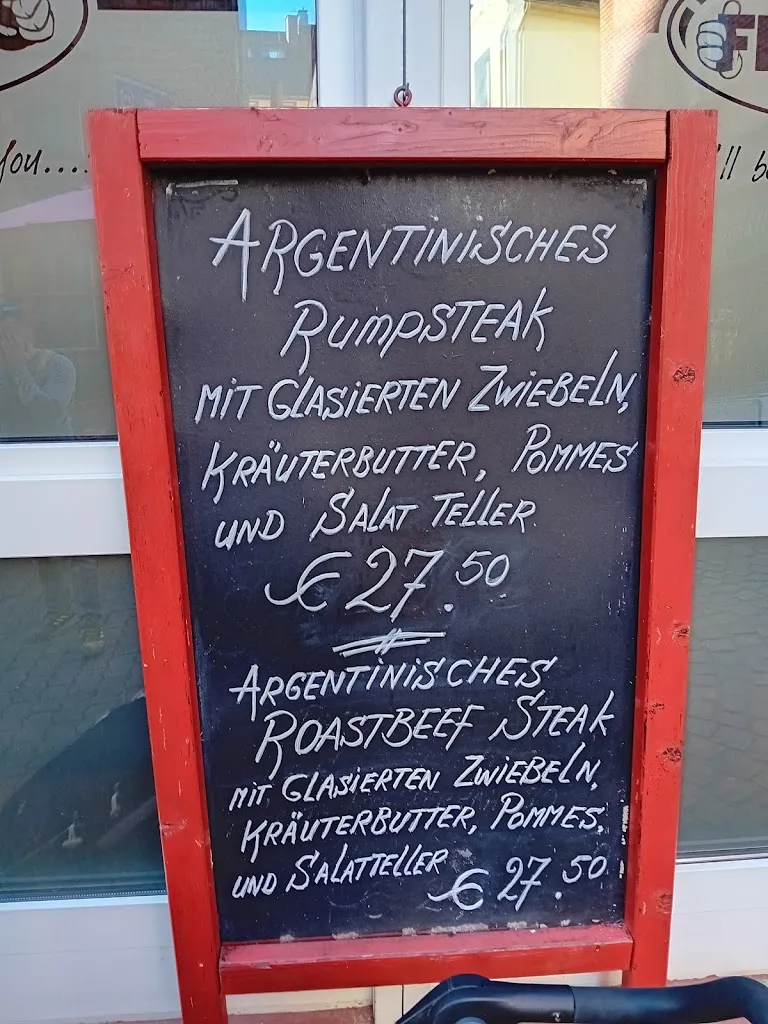 You....
'll b
ARGENTINISCHES
RUMPSTEAK
MIT GLASIERTEN ZWIEBELN,
KRÄUTERBUTTER, POMMES
UND SALAT TELLER
€ 27.50
ARGENTINISCHES
ROASTBEEF STEAK
MIT GLASIERTEN ZWIEBELN,
KRÄUTERBUTTER, POMMES,
UND SALATTELLER
€ 27.50